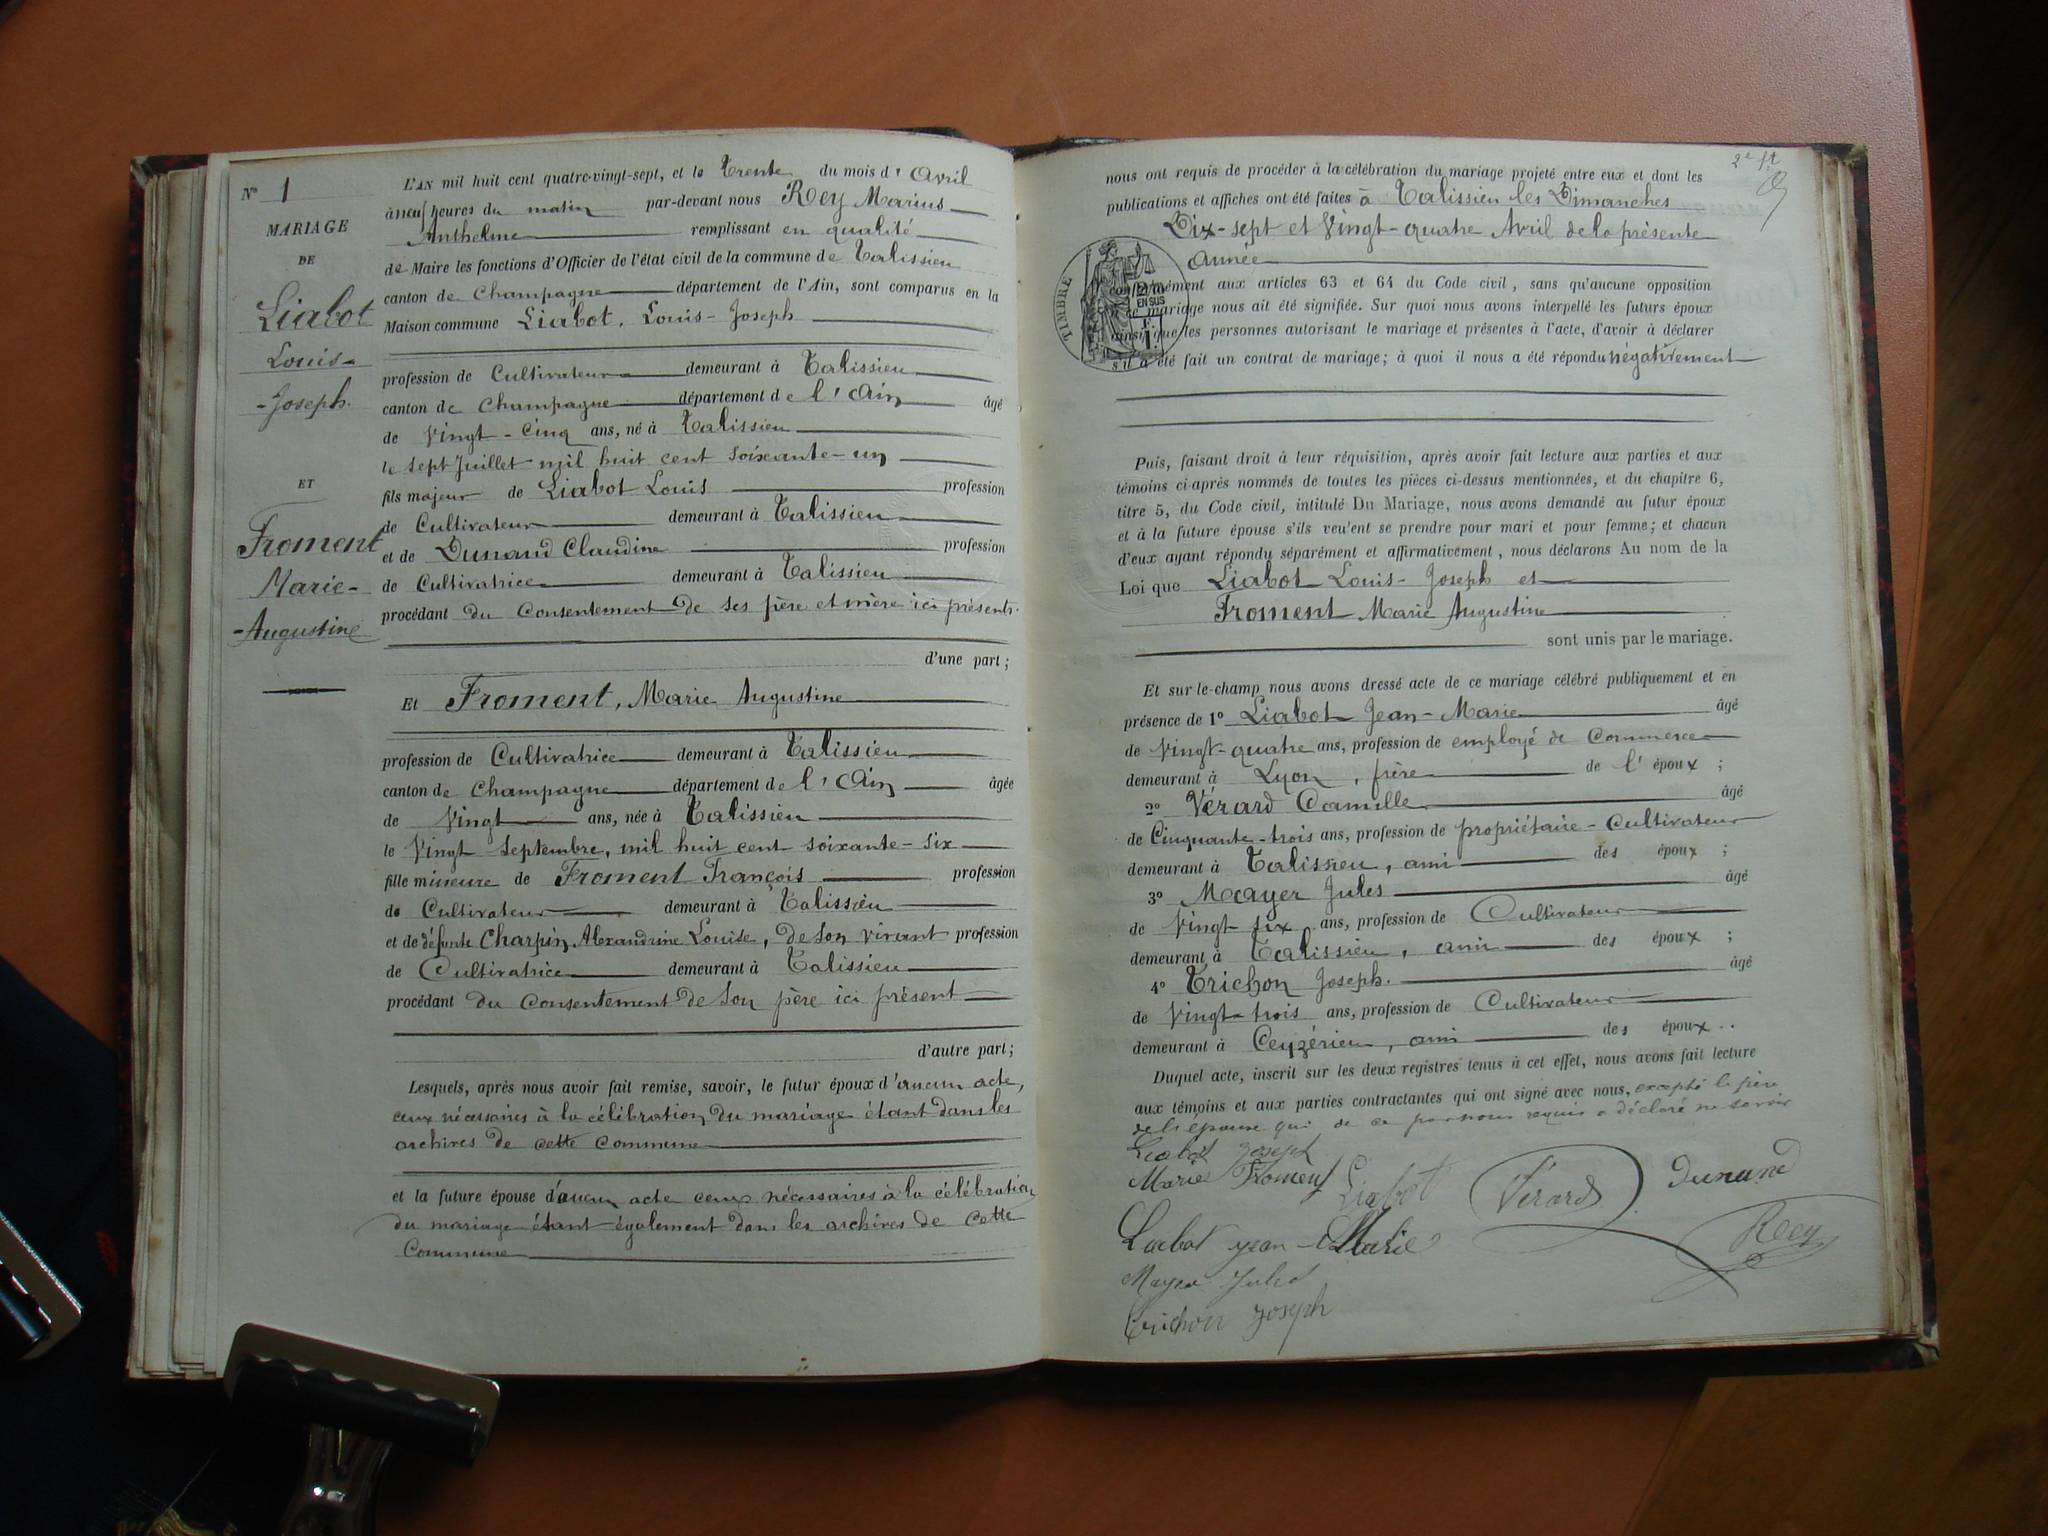 N° 1
MARIAGE
DE
Liabot
Louis-
-Joseph.
ET
Froment
Marie-
-Augustine
L'AN mil huit cent quatre-vingt-sept, et le Trente du mois d'Avril
à neuf heures du matin par-devant nous Rey Marius
Anthelme remplissant en qualité
de Maire les fonctions d'Officier de l'état civil de la commune de Talissieu
canton de Champagne département de l'Ain, sont comparus en la
Maison commune Liabot, Louis-Joseph
profession de Cultivateur demeurant à Talissieu
canton de Champagne département de l'Ain âgé
de Vingt-Cinq ans, né à Talissieu
le sept Juillet mil huit cent soixante-un
fils majeur de Liabot Louis profession
de Cultivateur demeurant à Talissieu
et de Dunand Claudine profession
de Cultivatrice demeurant à Talissieu
procédant du Consentement de ses père et mère ici présents.
d'une part ;
Et Froment, Marie Augustine
profession de Cultivatrice demeurant à Talissieu
canton de Champagne département de l'Ain âgée
de Vingt ans, née à Talissieu
le Vingt Septembre, mil huit cent soixante-six
fille mineure de Froment François profession
de Cultivateur demeurant à Talissieu
et de défunte Charpin, Alexandrine Louise, de son vivant profession
de Cultivatrice demeurant à Talissieu
procédant du Consentement de son père ici présent
d'autre part ;
Lesquels, après nous avoir fait remise, savoir, le futur époux d'aucun acte,
ceux nécessaires à la célébration du mariage étant dans les
archives de cette commune
et la future épouse d'aucun acte ceux nécessaires à la célébration
du mariage étant également dans les archives de cette
Commune
nous ont requis de procéder à la célébration du mariage projeté entre eux et dont les
publications et affiches ont été faites à Talissieu les Dimanches
Dix-sept et Vingt-quatre Avril de la présente
Année
TIMBRE
EN SUS
conformément aux articles 63 et 64 du Code civil, sans qu'aucune opposition
à ce mariage nous ait été signifiée. Sur quoi nous avons interpellé les futurs époux
ainsi que les personnes autorisant le mariage et présentes à l'acte, d'avoir à déclarer
s'il a été fait un contrat de mariage ; à quoi il nous a été répondu négativement
Puis, faisant droit à leur réquisition, après avoir fait lecture aux parties et aux
témoins ci-après nommés de toutes les pièces ci-dessus mentionnées, et du chapitre 6,
titre 5, du Code civil, intitulé Du Mariage, nous avons demandé au futur époux
et à la future épouse s'ils veu'ent se prendre pour mari et pour femme ; et chacun
d'eux ayant répondu séparément et affirmativement, nous déclarons Au nom de la
Loi que Liabot Louis-Joseph et
Froment Marie Augustine
sont unis par le mariage.
Et sur-le-champ nous avons dressé acte de ce mariage célébré publiquement et en
présence de 1° Liabot Jean-Marie âgé
de Vingt-quatre ans, profession de employé de Commerce
demeurant à Lyon, frère de l'époux ;
2° Vérard Camille âgé
de Cinquante-trois ans, profession de propriétaire-Cultivateur
demeurant à Talissieu, ami des époux ;
3° Mayer Jules âgé
de Vingt six ans, profession de Cultivateur
demeurant à Talissieu, ami des époux ;
4° Trichon Joseph. âgé
de Vingt-trois ans, profession de Cultivateur
demeurant à Ceyzérieu, ami des époux..
Duquel acte, inscrit sur les deux registres tenus à cet effet, nous avons fait lecture
aux témoins et aux parties contractantes qui ont signé avec nous, excepté le père
de la épouse qui de ce par nous requis a déclaré ne savoir
Liabot Joseph
Marie Froment Liabot Vérard Dunand
Liabot jean Marie Rey
Mayer Jules
Trichon Joseph